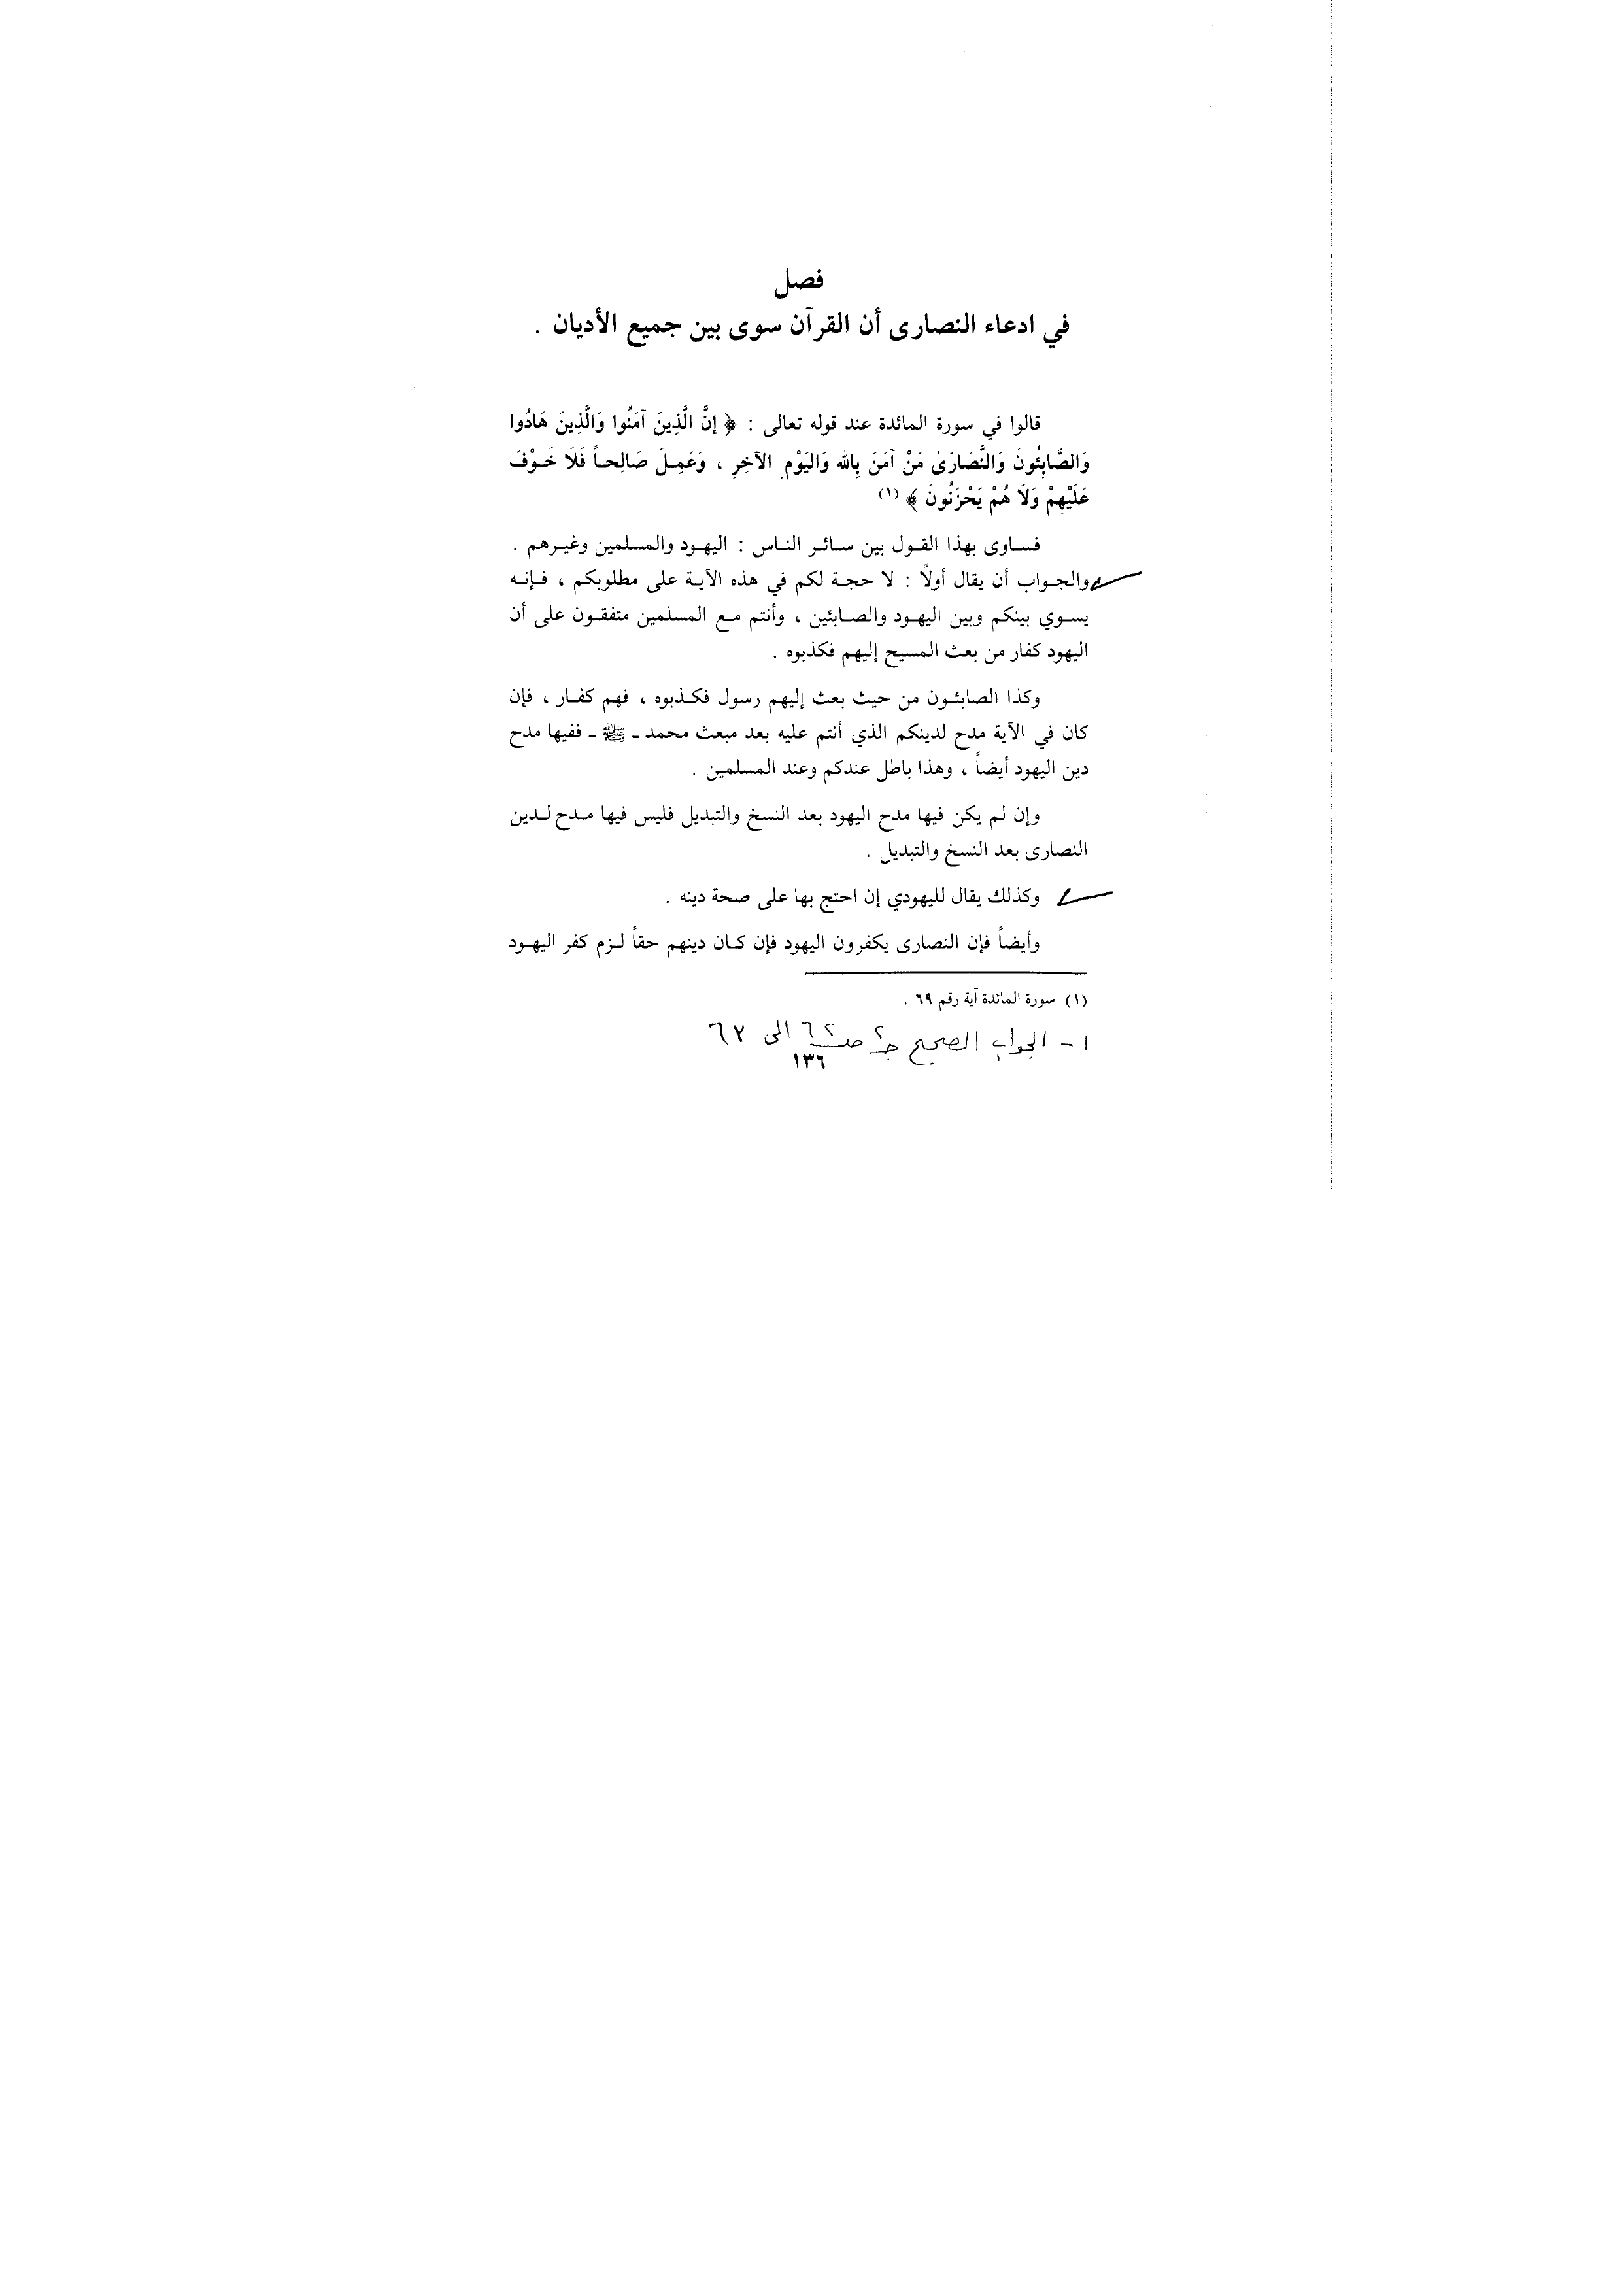 فصل
في ادعاء النصارى أن القرآن سوى بين جميع الأديان .
قالوا في سورة المائدة عند قوله تعالى : ﴿ إنَّ الَّذِينَ آمَنُوا وَالَّذِينَ هَادُوا
وَالصَّابِئُونَ وَالنَّصَارَىٰ مَنْ آمَنَ بِالله وَاليَوْمِ الآخِرِ ، وَعَمِـلَ صَالِحـاً فَلَا خَـوْفَ
عَلَيْهِمْ وَلَا هُمْ يَحْزَنُونَ ﴾ (١)
فسـاوى بهذا القـول بين سـائـر النـاس : اليهـود والمسلمين وغيـرهم .
والجـواب أن يقال أولًا : لا حجـة لكم في هذه الآيـة على مطلوبكم ، فـإنـه
يسـوي بينكم وبين اليهـود والصـابئين ، وأنتم مـع المسلمين متفقـون على أن
اليهود كفار من بعث المسيح إليهم فكذبوه .
وكذا الصابئـون من حيث بعث إليهم رسول فكـذبوه ، فهم كفـار ، فإن
كان في الآية مدح لدينكم الذي أنتم عليه بعد مبعث محمد ـ ﷺ ـ ففيها مدح
دين اليهود أيضاً ، وهذا باطل عندكم وعند المسلمين .
وإن لم يكن فيها مدح اليهود بعد النسخ والتبديل فليس فيها مـدح لـدين
النصارى بعد النسخ والتبديل .
وكذلك يقال لليهودي إن احتج بها على صحة دينه .
وأيضاً فإن النصارى يكفرون اليهود فإن كـان دينهم حقاً لـزم كفر اليهـود
(١) سورة المائدة آية رقم ٦٩ .
١ - الجواب الصحيح جـ٢ صـ٦٢ الى ٦٣
١٣٦